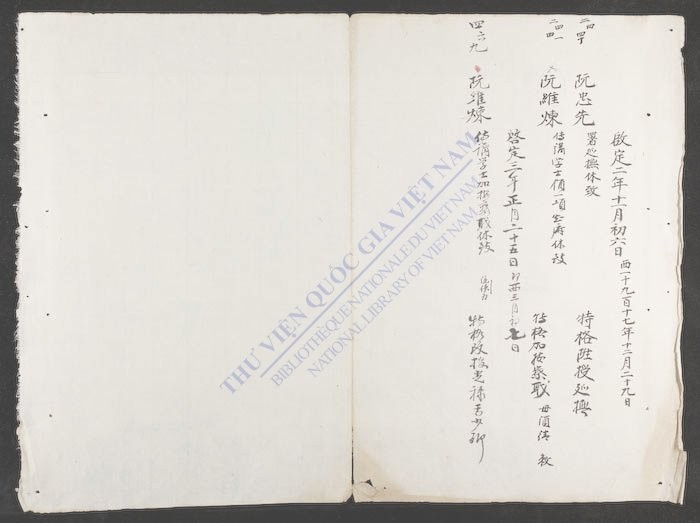 啟定二年十一月初六日 西一千九百十七年十二月二十九日
二四
阮忠先 署巡撫休致 特格陞授巡撫
二四一
阮維煉 侍讀学士領一項 休致 特格加按察職
啓定三年正月二十五日 即西三月初七日
四六九
阮維煉 侍讀学士加按察職休致 特格改授光禄寺少卿
THƯ VIỆN QUỐC GIA VIỆT NAM
BIBLIOTHÈQUE NATIONALE DU VIETNAM
NATIONAL LIBRARY OF VIETNAM